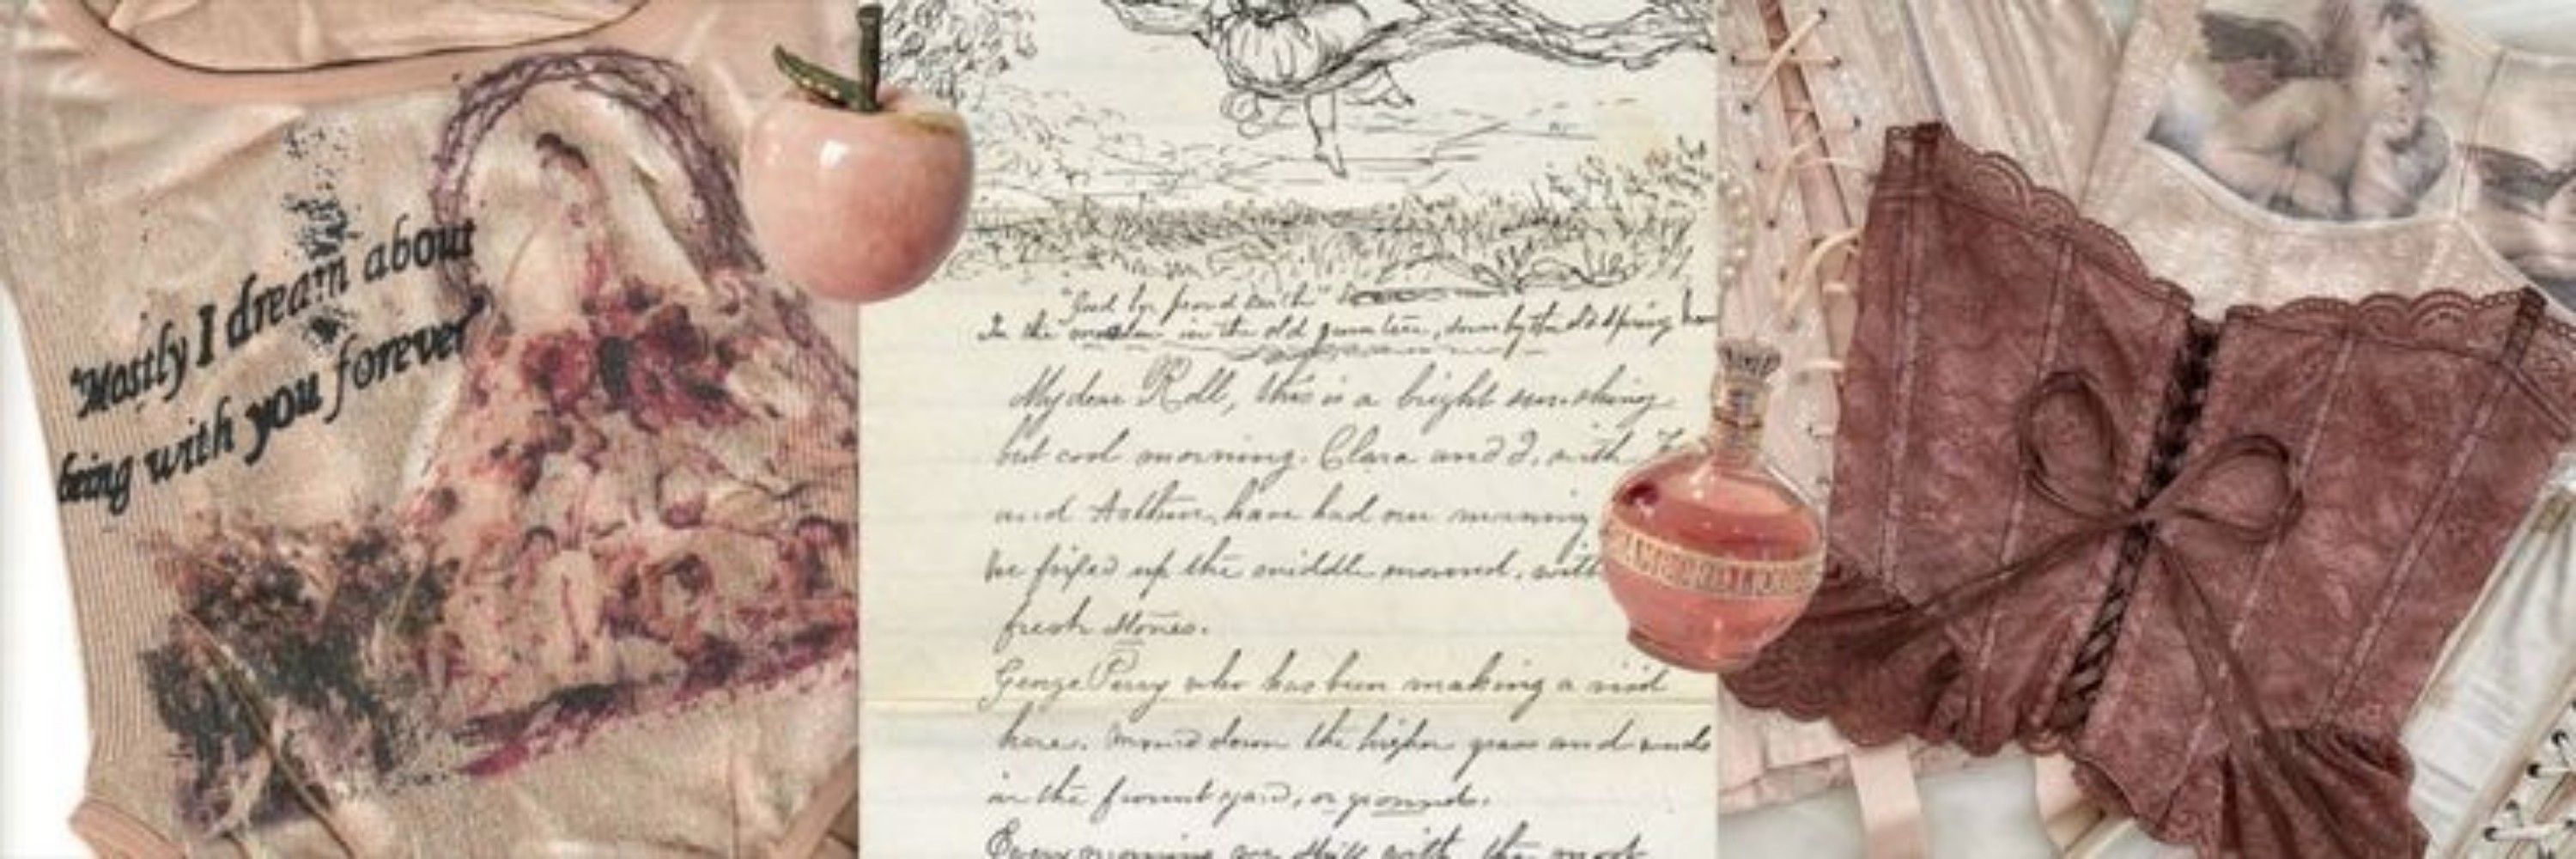 "Mostly I dream about
being with you forever"
"Good by proud
In the in the old down by the old spring
My dear Roll, this is a bright sun-shiny
but cool morning. Clara and I, with
and Arthur, have had our morning
we fixed up the middle mound, with
fresh stones.
George Perry who has been making a visit
here. mowed down the higher grass and weeds
in the front yard, or grounds.
Every morning we with the most